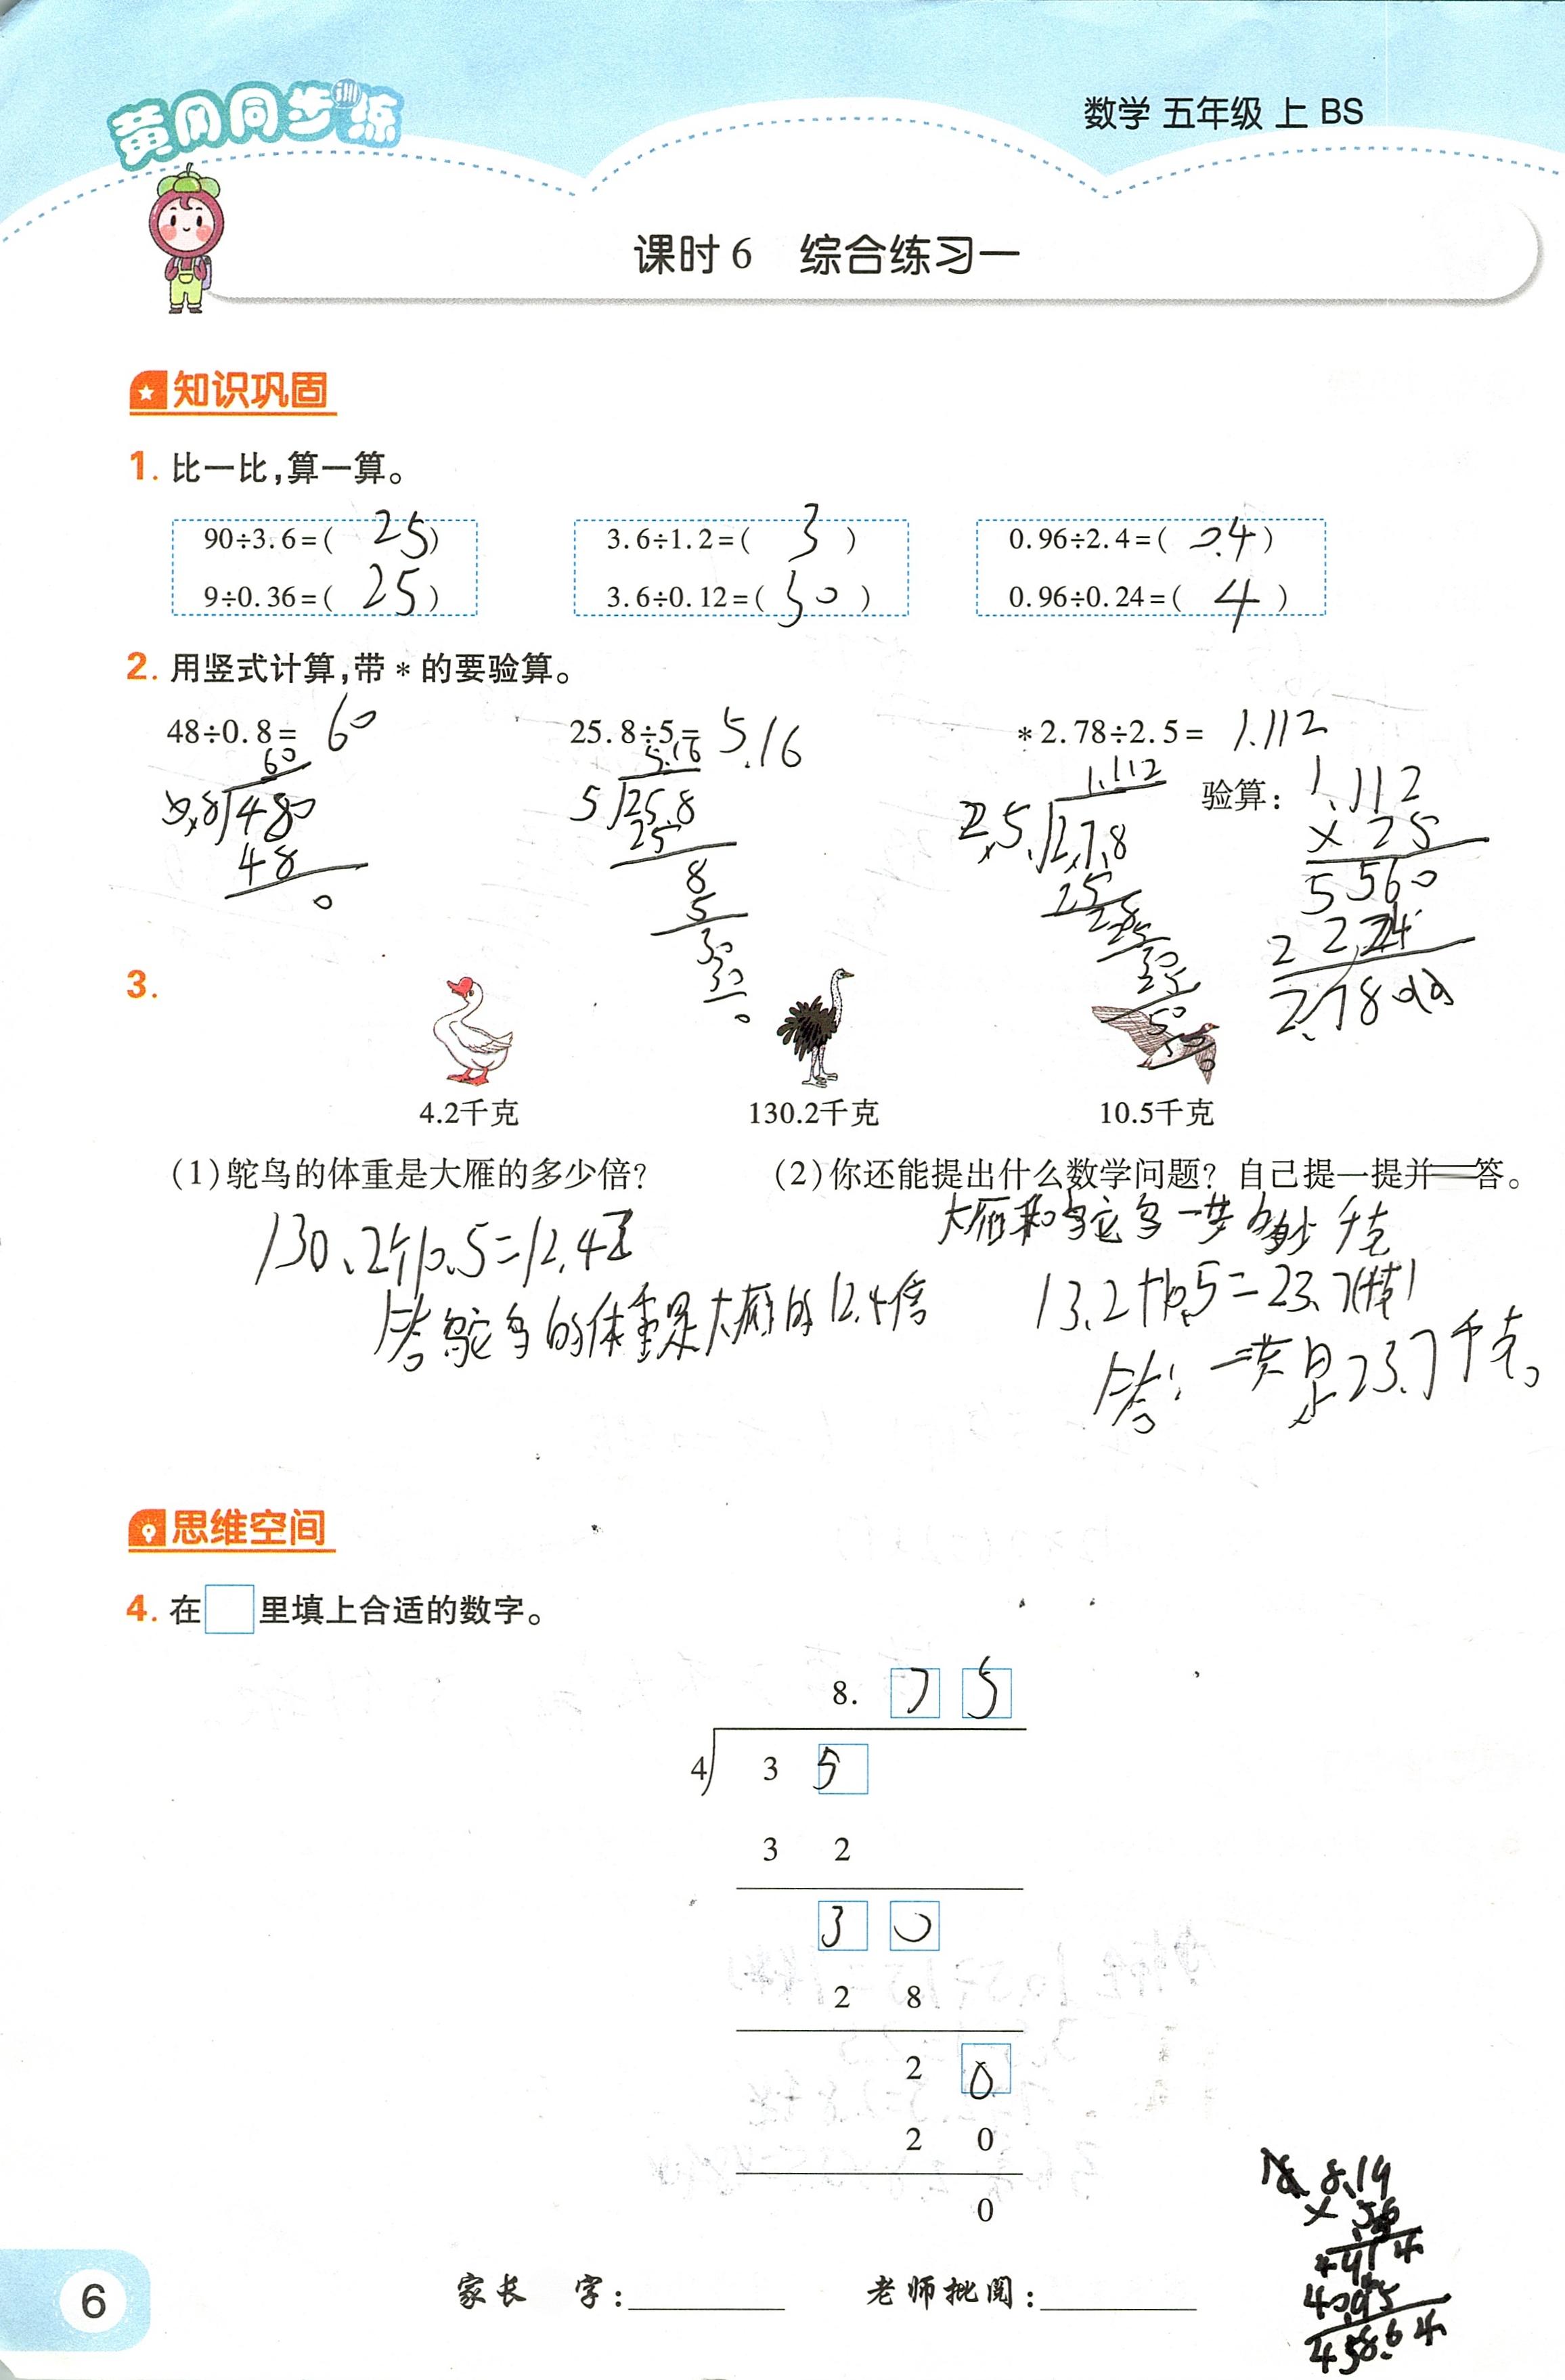 黄冈同步训练
数学 五年级 上 BS
课时6 综合练习一
知识巩固
1. 比一比,算一算。
90÷3.6=( 25 ) 3.6÷1.2=( 3 ) 0.96÷2.4=( 0.4 )
9÷0.36=( 25 ) 3.6÷0.12=( 30 ) 0.96÷0.24=( 4 )
2. 用竖式计算,带*的要验算。
48÷0.8= 60 25.8÷5= 5.16 *2.78÷2.5= 1.112
60
0.8 480
48
0
5.16
5 25.8
25
8
5
30
30
0
1.112
2.5 2.7.8
25
28
25
30
25
50
50
0
验算: 1.112
× 25
5560
2 224
2.7800
3.
4.2千克 130.2千克 10.5千克
(1)鸵鸟的体重是大雁的多少倍?
130.2÷10.5=12.4
答鸵鸟的体重是大雁的12.4倍
(2)你还能提出什么数学问题? 自己提一提并 答。
大雁和鸵鸟一共多少千克
13.2+10.5=23.7
答:一共是23.7千克。
思维空间
4. 在□里填上合适的数字。
8. 7 5
4 3 5
3 2
3 0
2 8
2 0
2 0
0
8.19
× 56
4914
4095
458.64
6
家长 字: 老师批阅: